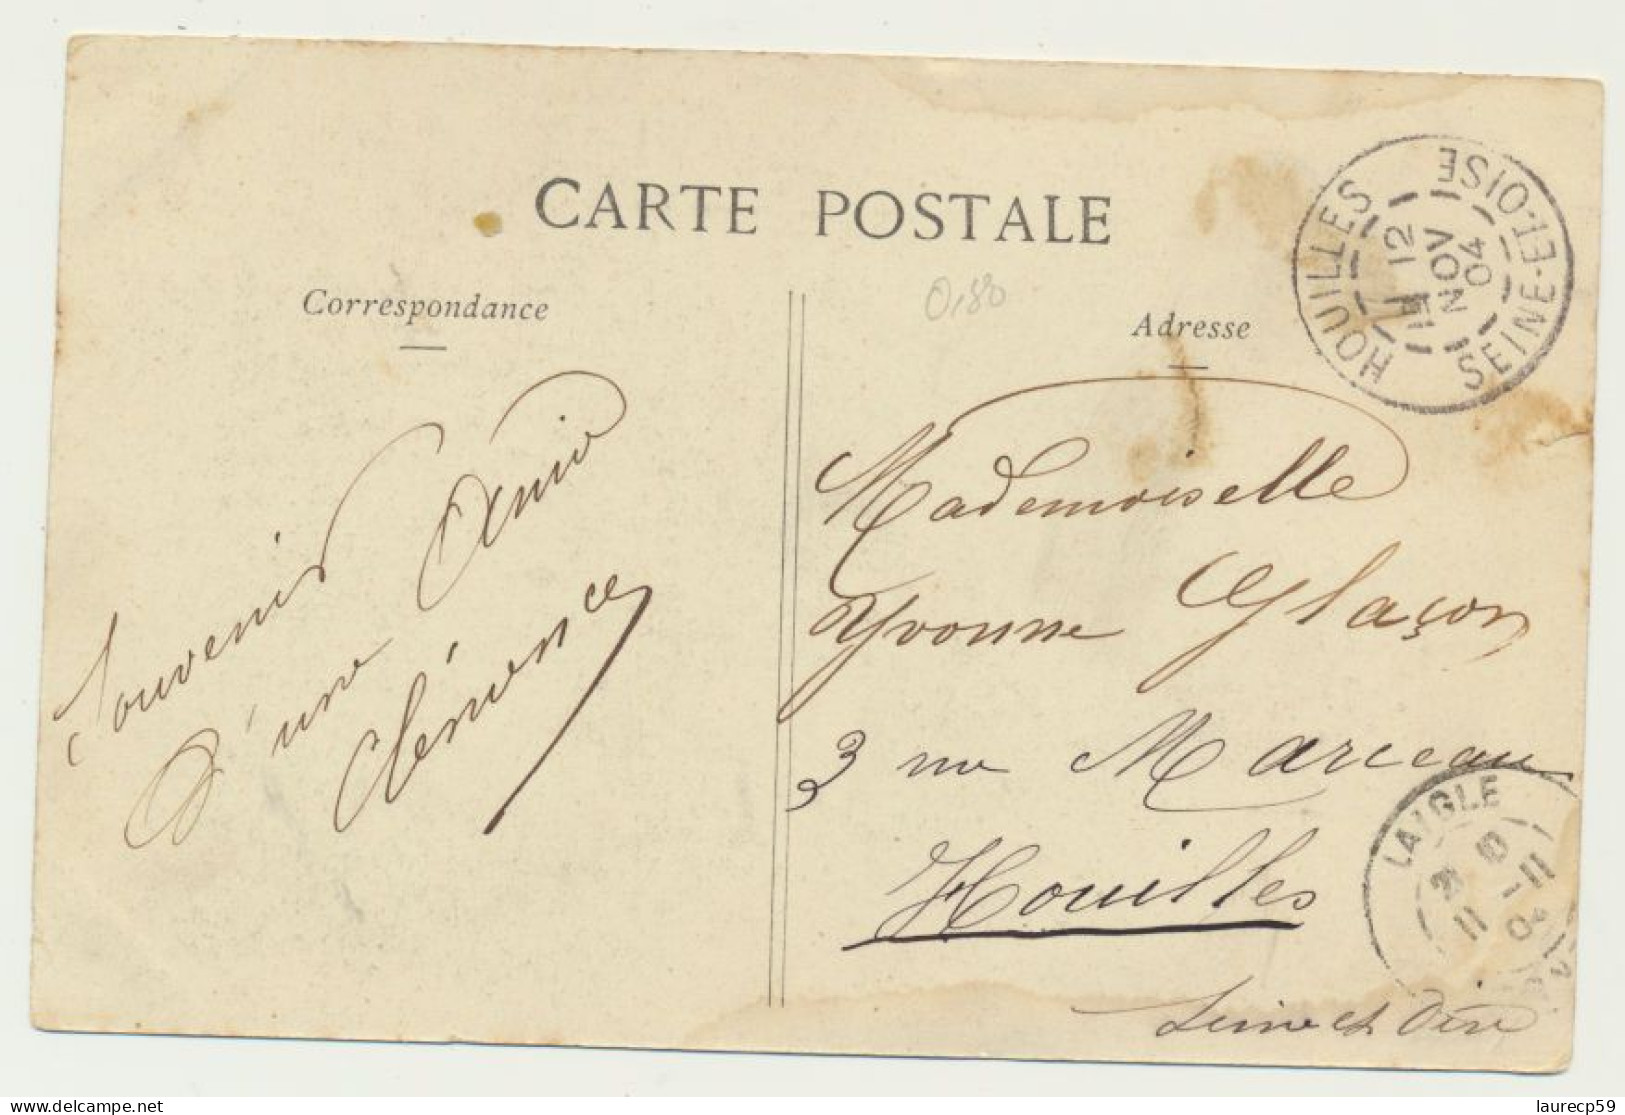 CARTE POSTALE
Correspondance
Souvenir
d'une Amie
Clémence
0,80
Adresse
Mademoiselle
Yvonne Glaçon
3 rue Marceau
Houilles
Seine et Oise
HOUILLES
SEINE-ET-OISE
12
NOV
04
LAIGLE
11 -11
04
laurecp59